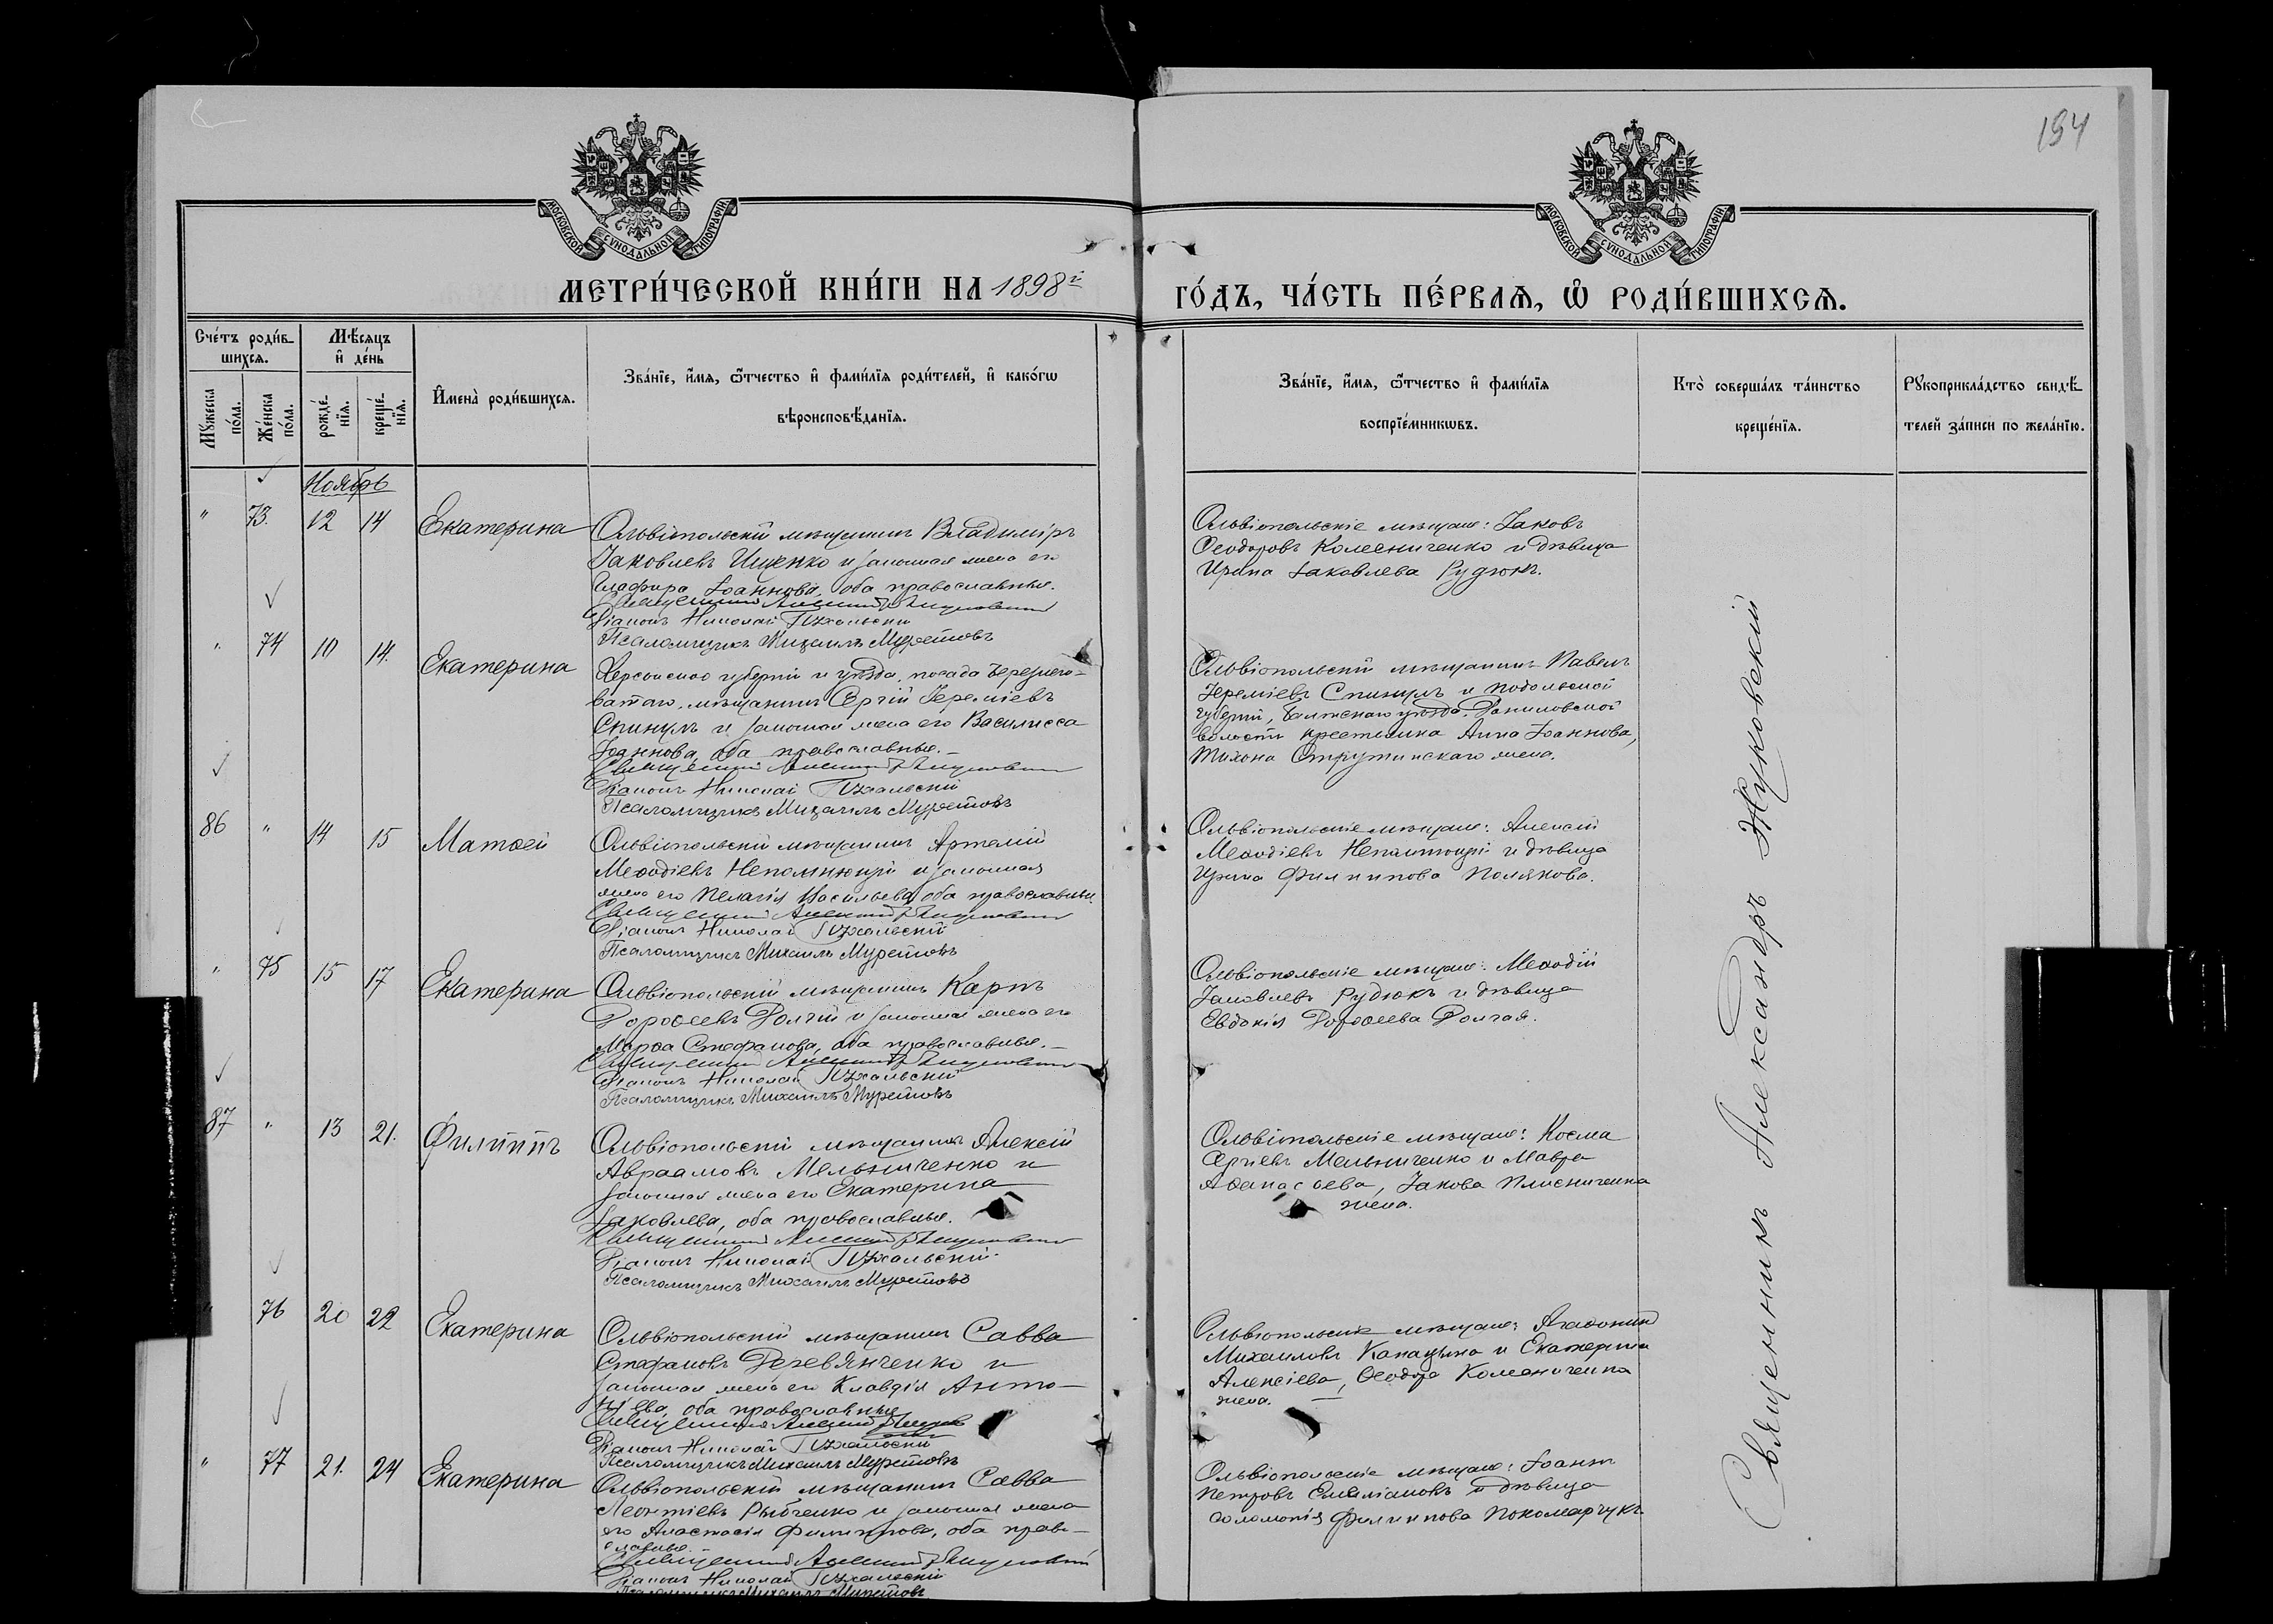 194
МОСКОВСКОЙ СѴНОДАЛЬНОЙ ТИПОГРАФІИ.
МОСКОВСКОЙ СѴНОДАЛЬНОЙ ТИПОГРАФІИ.
МЕТРИ́ЧЕСКОЙ КНИ́ГИ НА 1898й
ГО́ДЪ, ЧА́СТЬ ПЕ́РВАѦ, Ѡ РОДИ́ВШИХСѦ.
Сче́тъ роди́в-
шихсѧ.
Мꙋжеска по́ла.
Же́нска по́ла.
Мѣ́сѧцъ
и де́нь
рожде́-нїѧ.
креще́-нїѧ.
Имена̀ роди́вшихсѧ.
Зва́нїе, и́мѧ, ѻ҆́тчество и фами́лїѧ роди́телей, и како́гѡ
вѣроисповѣ́данїѧ.
Зва́нїе, и́мѧ, ѻ҆́тчество и фами́лїѧ
воспрїе́мникѡвъ.
Кто̀ соверша́лъ та́инство
креще́нїѧ.
Рꙋкоприкла́дство свидѣ́-
телей за́писи по жела́нїю.
Ноябрь
" 73. 12 14 Екатерина
Ольвіопольскій мѣщанинъ Владиміръ
Іаковлевъ Ищенко и законная жена его
Глафира Іоаннова, оба православные.
Діаконъ Николай Пухальскій
Псаломщикъ Михаилъ Муретовъ
Ольвіопольскіе мѣщане: Іаковъ
Ѳеодоровъ Колесниченко и дѣвица
Ирина Іаковлева Рудюкъ.
" 74 10 14. Екатерина
Херсонской губерніи и уѣзда, посада Березнего-
ватаго, мѣщанинъ Сергій Іереміевъ
Спинулъ и законная жена его Василисса
Іоаннова, оба православные.–
Діаконъ Николай Пухальскій
Псаломщикъ Михаилъ Муретовъ
Ольвіопольскій мѣщанинъ Павелъ
Іереміевъ Спинулъ и Подольской
губерніи, Балтскаго уѣзда, Даниловской
волости крестьянка Анна Іоаннова,
Тихона Струтинскаго жена.
86 " 14 15 Матѳей
Ольвіопольскій мѣщанинъ Артемій
Меѳодіевъ Непомнющій и законная
жена его Пелагія Васильева, оба православные.
Діаконъ Николай Пухальскій
Псаломщикъ Михаилъ Муретовъ
Ольвіопольскіе мѣщане: Алексій
Меѳодіевъ Непомнющій и дѣвица
Ирина Филиппова Полякова.
" 75 15 17 Екатерина
Ольвіопольскій мѣщанинъ Карпъ
Дороѳеевъ Долгій и законная жена его
Марѳа Стефанова, оба православные.–
Діаконъ Николай Пухальскій
Псаломщикъ Михаилъ Муретовъ
Ольвіопольскіе мѣщане: Меѳодій
Іаковлевъ Рудюкъ и дѣвица
Евдокія Дороѳеева Долгая.
87 " 13 21. Филиппъ
Ольвіопольскій мѣщанинъ Алексій
Авраамовъ Мельниченко и
законная жена его Екатерина
Іаковлева, оба православные.
Діаконъ Николай Пухальскій
Псаломщикъ Михаилъ Муретовъ
Ольвіопольскіе мѣщане: Косма
Сергіевъ Мельниченко и Мавра
Аѳанасьева, Іакова
жена.
" 76 20 22 Екатерина
Ольвіопольскій мѣщанинъ Савва
Стефановъ Деревянченко и
законная жена его Клавдія Анто-
ніева, оба православные
Діаконъ Николай Пухальскій
Псаломщикъ Михаилъ Муретовъ
Ольвіопольскіе мѣщане:
Михаиловъ и Екатерина
Алексіева, Ѳеодора Колесниченка
жена. –
" 77 21. 24 Екатерина
Ольвіопольскій мѣщанинъ Савва
Леонтіевъ Рыбченко и законная жена
его Анастасія Филиппова, оба право-
славные.
Діаконъ Николай Пухальскій
Псаломщикъ Михаилъ Муретовъ
Ольвіопольскіе мѣщане: Іоаннъ
Петровъ Емеліановъ и дѣвица
Соломонія Филиппова Пономарчукъ.
Священникъ Александръ Жуковскій